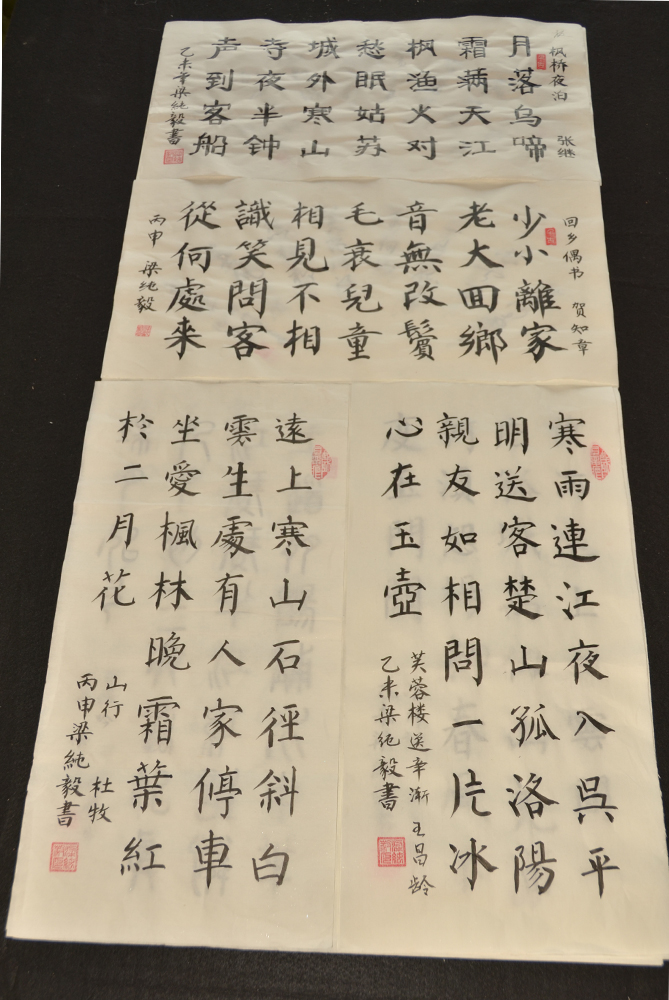 枫桥夜泊 张继
月落乌啼
霜满天江
枫渔火对
愁眠姑苏
城外寒山
寺夜半钟
声到客船
乙未梁純毅書
回乡偶书 贺知章
少小離家
老大回鄉
音無改鬢
毛衰兒童
相見不相
識笑問客
從何處來
丙申 梁純毅
寒雨連江夜入吳平
明送客楚山孤洛陽
親友如相問一片冰
心在玉壺
芙蓉楼送辛渐 王昌龄
乙未梁純毅書
遠上寒山石徑斜白
雲生處有人家停車
坐愛楓林晚霜葉紅
於二月花
山行 杜牧
丙申梁純毅書